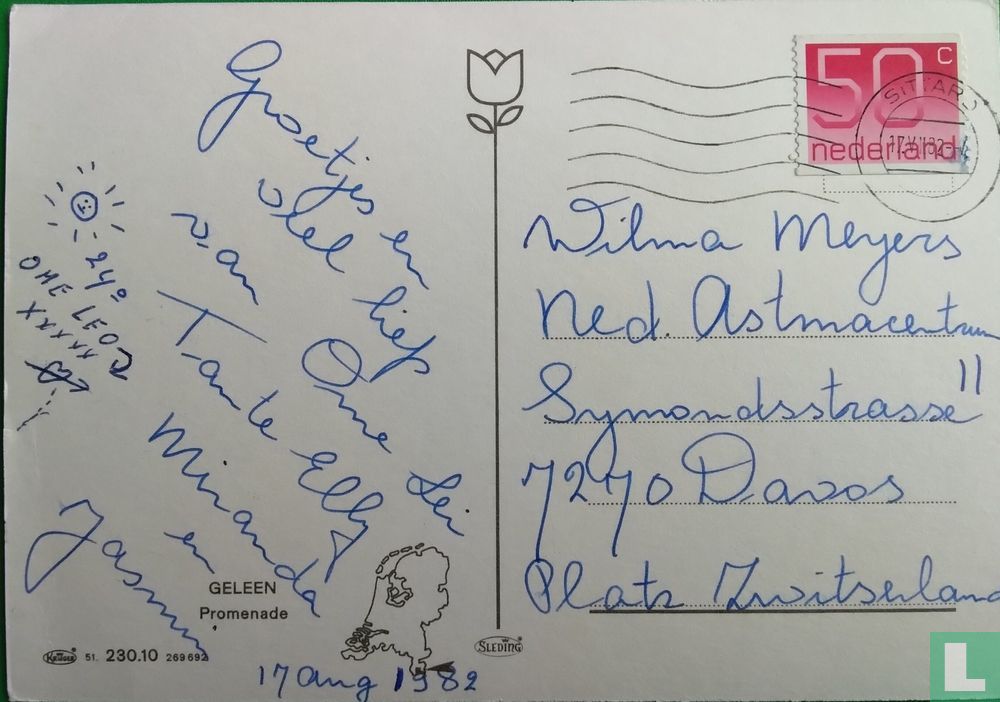 Groetjes en
veel liefs
van Ome Lei
Tante Elly
Miranda
en
Jasmin
24°
OME LEO
XXXXX
GELEEN
Promenade
KRÜGER 51. 230.10 269692
17 aug 1982
SLEDING®
50 c
nederland
SITTARD
Wilma Meyers
Ned. Astmacentrum
Symondsstrasse 11
7270 Davos
Platz Zwitserland
L